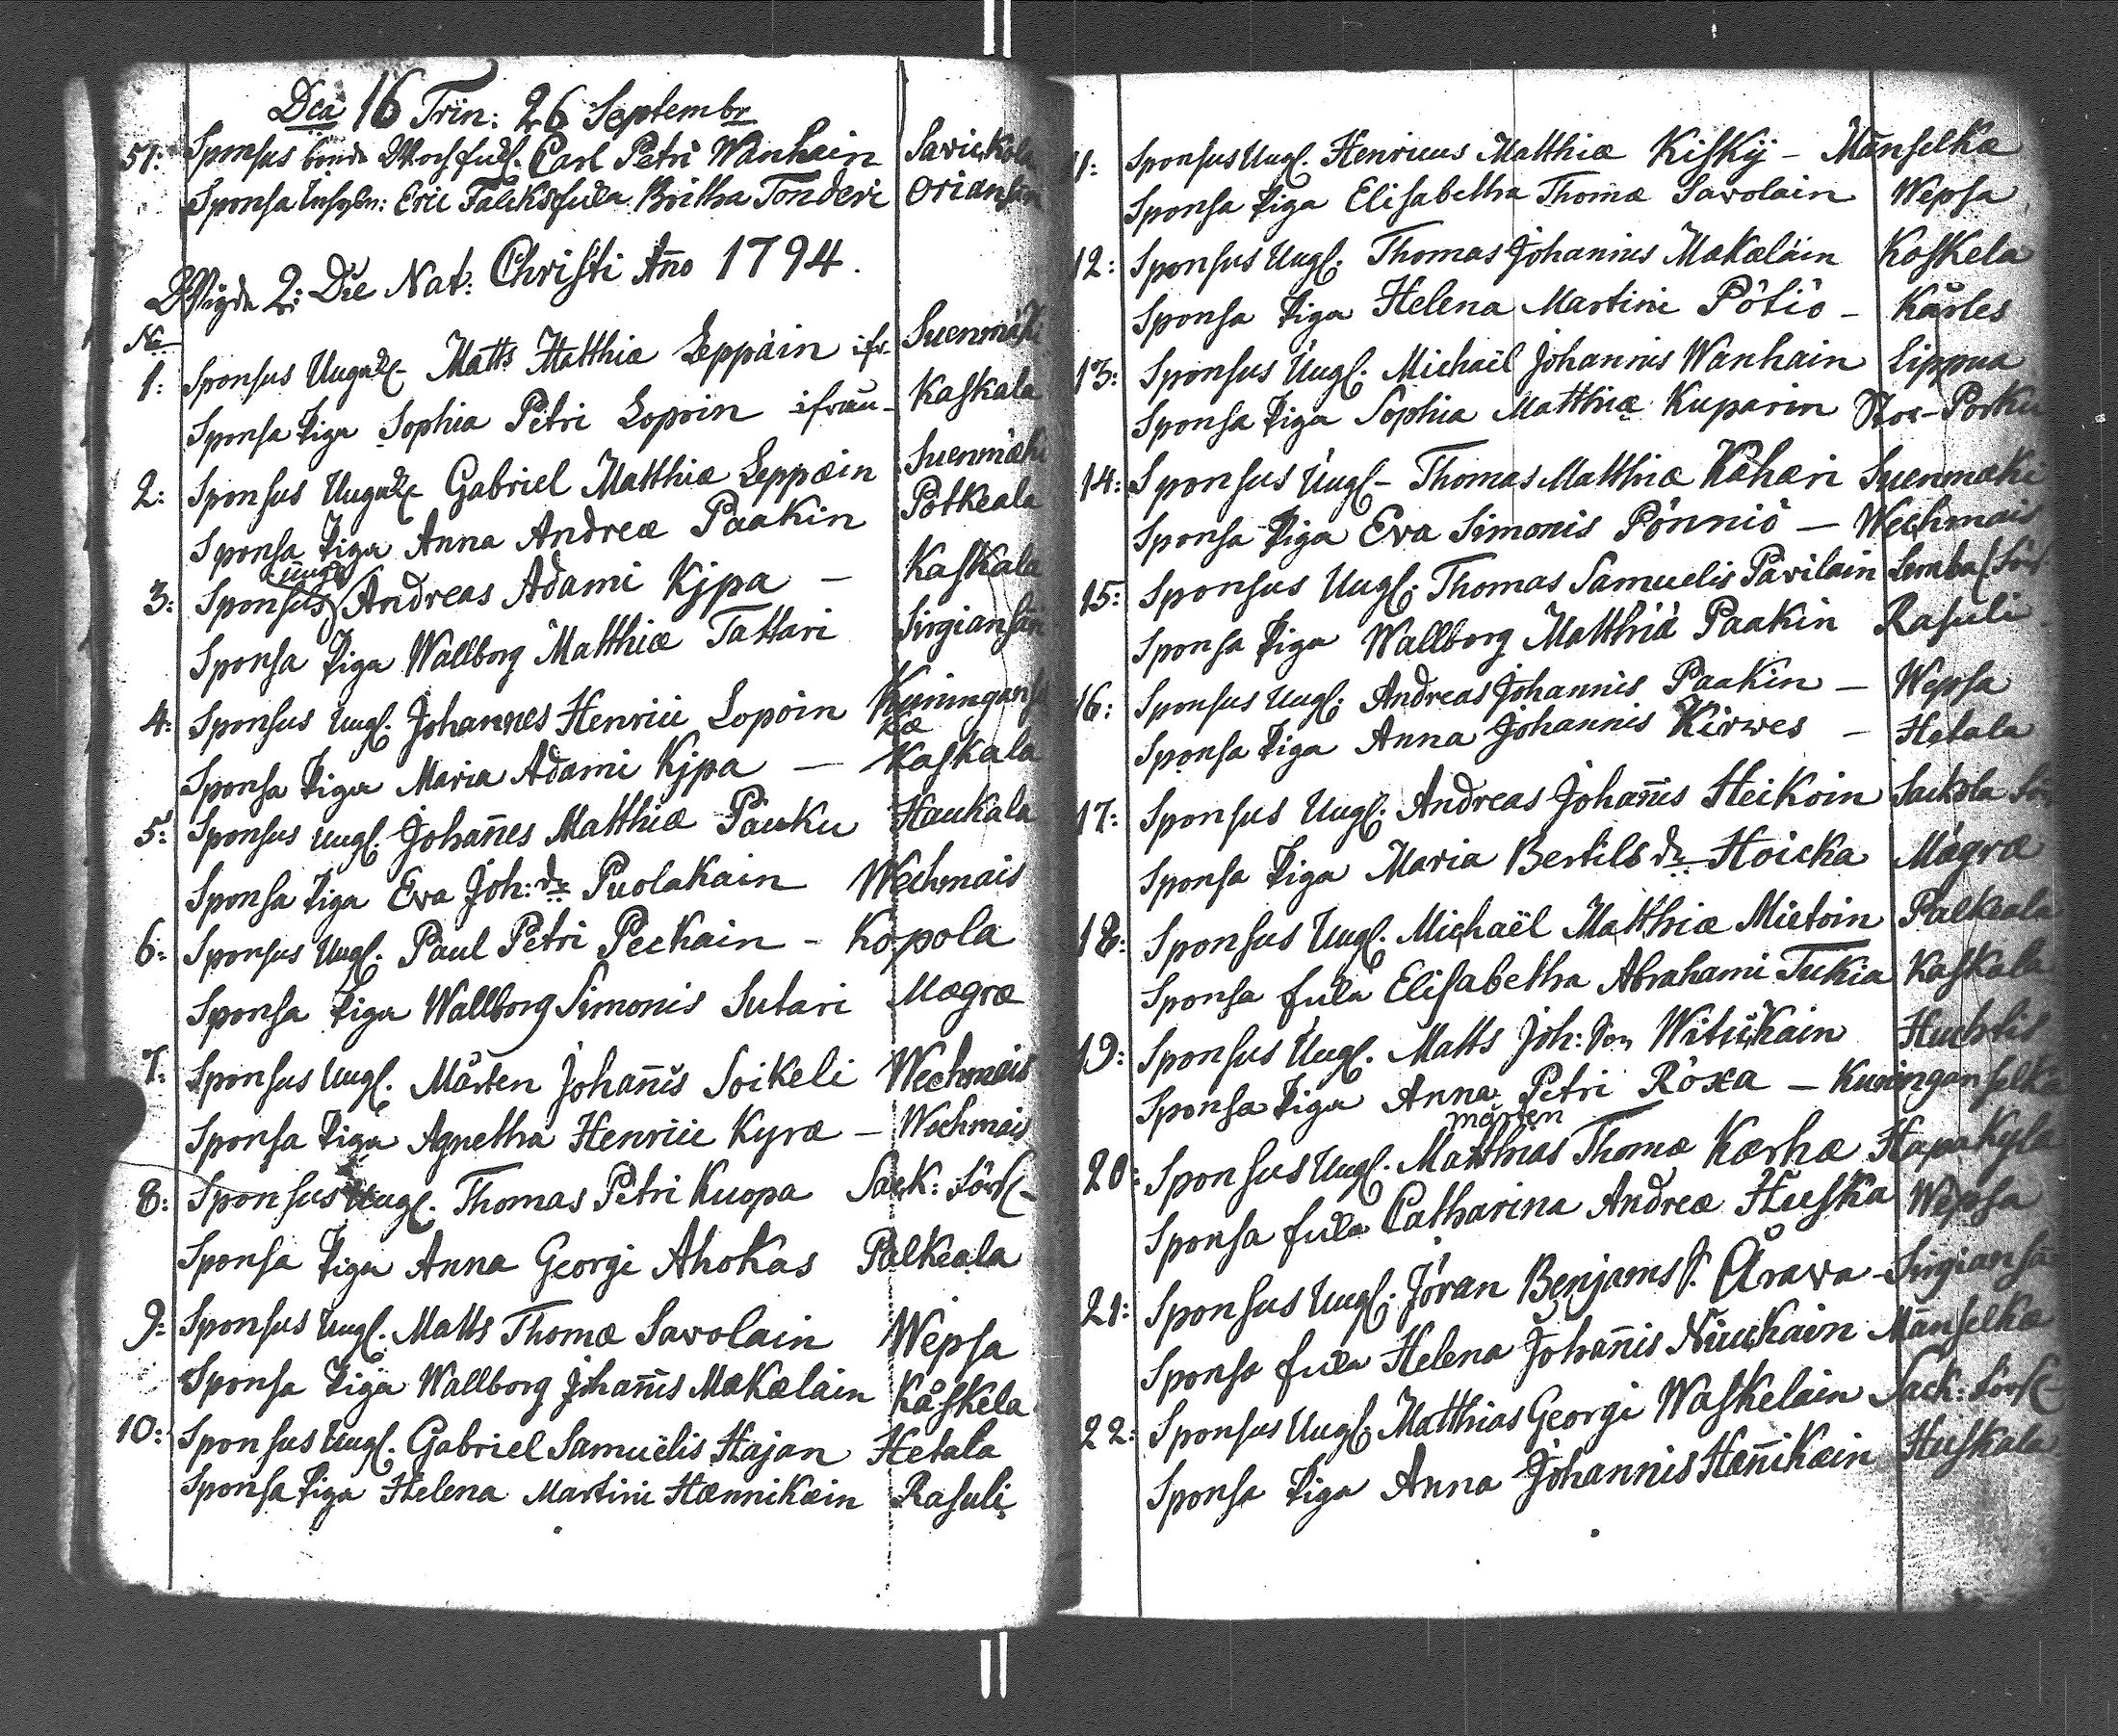 Dca 16 Trin: 26 Septembr
51: Sponsus bonde Carl Petri Wanhain Savickola
Sponsa Eric Falcks fula Britha Tonderi Oriansari
Wigde 2: Die Nat: Christi Año 1794.
No
1: Sponsus Ungk. Matts Matthiæ Leppäin ifr. Suenmäki
Sponsa Piga Sophia Petri Lopoin ifrån Kaskala
2: Sponsus Ungk. Gabriel Matthiæ Leppæin Suenmæki
Sponsa Piga Anna Andreæ Paakin Potkeala
3: Sponsus ung. Andreas Adami Kjpa – Kaskala
Sponsa Piga Wallborg Matthiæ Tattari Sirgiansari
4: Sponsus Ungl. Johannes Henrici Lopoin Kuningansel
kæ
Sponsa Piga Maria Adami Kjpa — Kaskala
5: Sponsus Ungl. Johañes Matthiæ Pauku Haukala
Sponsa Piga Eva Joh: dr Puolakain Wechmais
6: Sponsus Ungl. Paul Petri Peckain - Kopola
Sponsa Piga Wallborg Simonis Sutari Mægræ
7: Sponsus Ungl. Mårten Johañis Soikeli Wechmais
Sponsa Piga Agnetha Henrici Kyræ – Wechmais
8: Sponsus Ungl. Thomas Petri Kuopa Sack: Förs.
Sponsa Piga Anna Georgi Ahokas Palkeala
9: Sponsus Ungl. Matts Thomæ Savolain Wepsa
Sponsa Piga Wallborg Johañis Mækæläin Kåskela
10: Sponsus Ungl. Gabriel Samuelis Hajan Hetala
Sponsa Piga Helena Martini Hænnikæin Rasuli
11: Sponsus Ungl. Henricus Matthiæ Kiskÿ – Mänselkæ
Sponsa Piga Elisabetha Thomæ Savolain Wepsa
12: Sponsus Ungl. Thomas Johannis Mækæläin Koskela
Sponsa Piga Helena Martini Pötiö – Kårles
13: Sponsus Ungl. Michaël Johannis Wanhain Lippua
Sponsa Piga Sophia Matthiæ Kuparin Stor-Porku
14: Sponsus Ungl. Thomas Matthiæ Kähæri Suenmæki
Sponsa Piga Eva Simonis Pönniö — Wechmais
15: Sponsus Ungl. Thomas Samuelis Pavilain Lemba
Sponsa Piga Wallborg Matthiä Paakin Rasuli
16: Sponsus Ungl. Andreas Johannis Paakin – Wepsa
Sponsa Piga Anna Johannis Kirwes – Hetala
17: Sponsus Ungl. Andreas Johañis Heikoin Sackola
Sponsa Piga Maria Bertils dr Hoicka Mägræ
18: Sponsus Ungl. Michaël Matthiæ Mietoin Palkeala
Sponsa fula Elisabetha Abrahami Tukia Kaskala
19: Sponsus Ungl. Matts Joh: Son Witickain Huchtis
Sponsa Piga Anna Petri Röxa – Kuninganselkæ
mårten
20: Sponsus Ungl. Matthias Thomæ Kærhæ Hapakylæ
Sponsa fula Catharina Andreæ Huska Wepsa
21: Sponsus Ungl. Jöran Benjams S. Årawa – Sirgiansa
Sponsa fula Helena Johañis Niuckain Mänselkæ
22: Sponsus Ungl. Matthias Georgi Waskeläin Sack: Förs.
Sponsa Piga Anna Johannis Hæñikæin Huskala